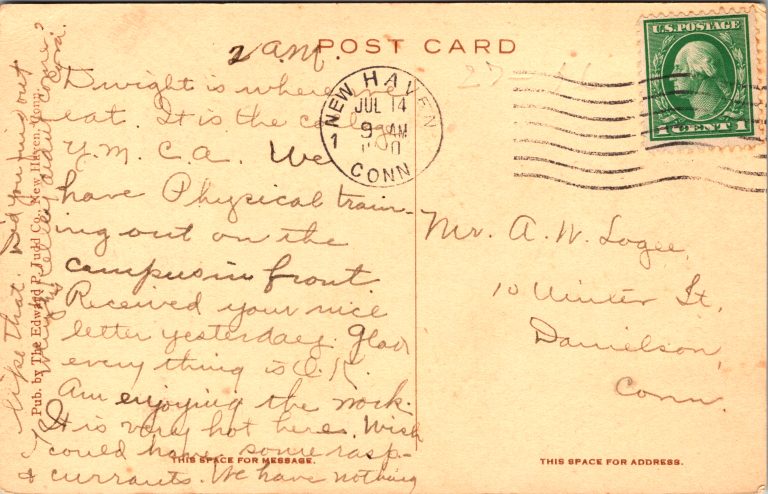 POST CARD
U.S. POSTAGE
1 CENT 1
NEW HAVEN
JUL 14
9 AM
CONN
1
2 a.m.
Dwight is where we
eat. It is the college
Y.M.C.A. We
have Physical train-
ing out on the
campus in front.
Received your nice
letter yesterday. Glad
every thing is O.K.
Am enjoying the work.
It is very hot here. Wish
I could have some rasp-
& currants. We have nothing
like that. Did you find out
about
Mr. A. W. Logee,
10 Winter St.
Danielson,
Conn.
Pub. by The Edward P. Judd Co., New Haven, Conn.
THIS SPACE FOR MESSAGE.
THIS SPACE FOR ADDRESS.